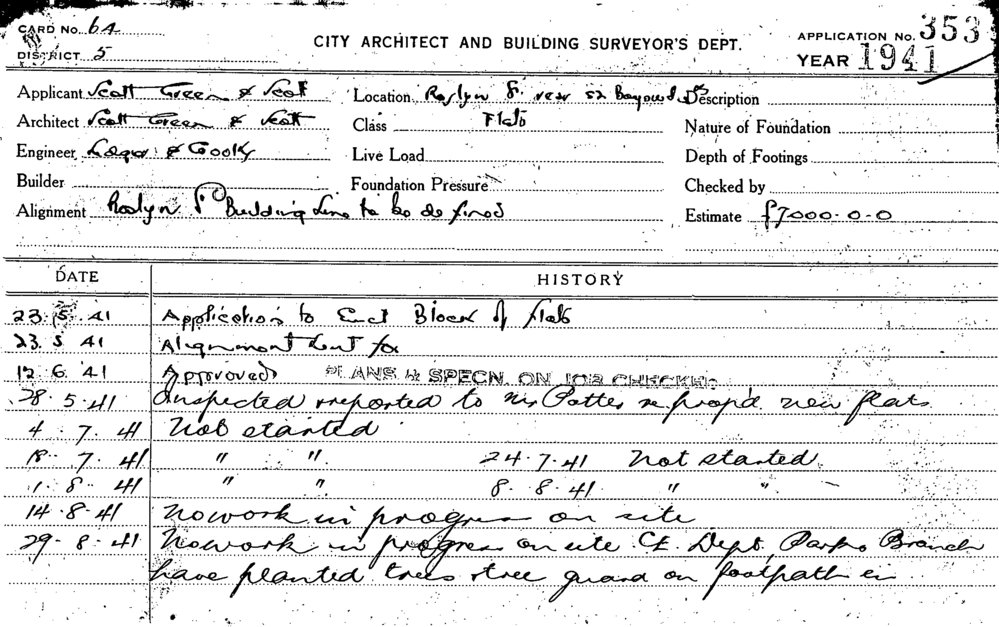 CARD No. 64
DISTRICT 5
CITY ARCHITECT AND BUILDING SURVEYOR'S DEPT.
APPLICATION No. 353
YEAR 1941
Applicant Scott Green & Scott
Location Roslyn St. rear 52 Bayswater Rd
Description
Architect Scott Green & Scott
Class Flats
Nature of Foundation
Engineer & Cooly
Live Load
Depth of Footings
Builder
Foundation Pressure
Checked by
Alignment Roslyn St Building Line to be defined
Estimate £7000-0-0
DATE HISTORY
23. 5. 41 Application to Erect Block of flats
23. 5 41 Alignment sent for
12. 6. 41 Approved PLANS & SPECN. ON JOB CHECKED
28. 5. 41 Inspected & reported to Mr Potter re prop'd new flats
4. 7. 41 Not started
18. 7. 41 " " 24.7.41 Not started
1. 8. 41 " " 8. 8. 41 " "
14. 8. 41 No work in progress on site
29. 8. 41 No work in progress on site. Dept, Parks Branch
have planted trees & tree guard on footpath